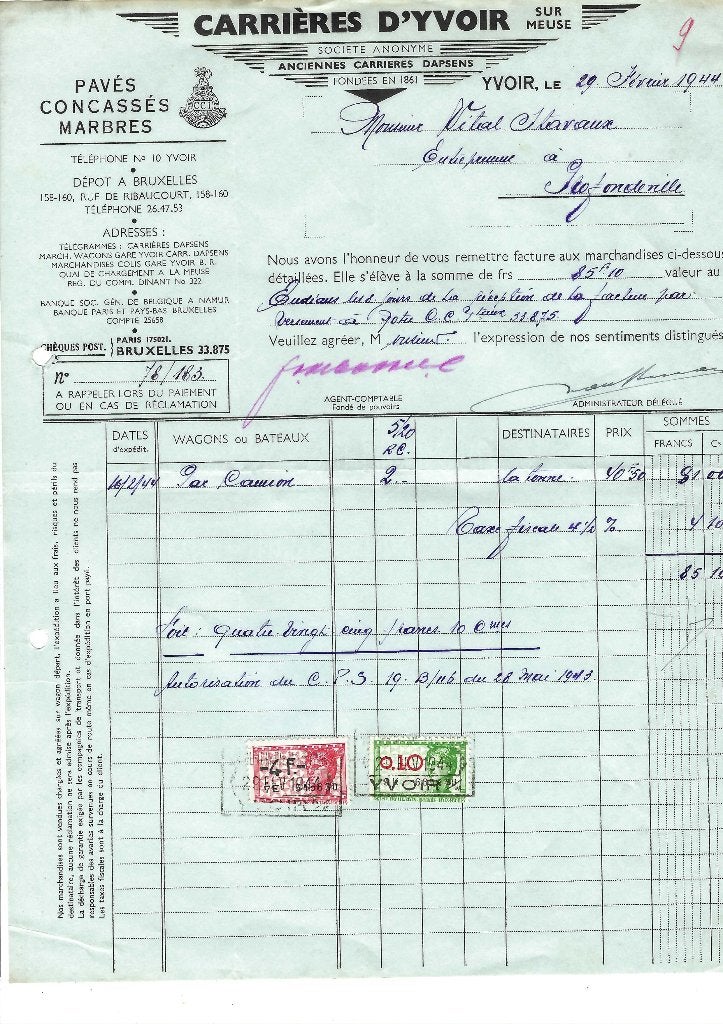 CARRIÈRES D'YVOIR SUR MEUSE
SOCIÉTÉ ANONYME
ANCIENNES CARRIERES DAPSENS
FONDÉES EN 1861
9
PAVÉS
CONCASSÉS
MARBRES
TÉLÉPHONE No 10 YVOIR
DÉPOT A BRUXELLES
158-160, RUE DE RIBAUCOURT, 158-160
TÉLÉPHONE 26.47.53
ADRESSES :
TÉLÉGRAMMES : CARRIÈRES DAPSENS
MARCH. WAGONS GARE YVOIR CARR. DAPSENS
MARCHANDISES COLIS GARE YVOIR B. R.
QUAI DE CHARGEMENT A LA MEUSE
REG. DU COMM. DINANT No 322
BANQUE SOC. GÉN. DE BELGIQUE A NAMUR
BANQUE PARIS ET PAYS-BAS BRUXELLES
COMPTE 25658
CHÈQUES POST. PARIS 175021.
BRUXELLES 33.875
No 78/183
A RAPPELER LORS DU PAIEMENT
OU EN CAS DE RÉCLAMATION
YVOIR, LE 29 Février 1944
Monsieur Vital Stavaux
Entrepreneur à
Profondeville
Nous avons l'honneur de vous remettre facture aux marchandises ci-dessous
détaillées. Elle s'élève à la somme de frs 85F10 valeur au
jours de la réception de la facture par
versement à notre C.C. 33.875
Veuillez agréer, M l'expression de nos sentiments distingués
AGENT-COMPTABLE
Fondé de pouvoirs
ADMINISTRATEUR DÉLÉGUÉ
DATES d'expédit. WAGONS ou BATEAUX 5/20 DESTINATAIRES PRIX SOMMES
FRANCS
16/2/44 Par Camion 2.- la tonne. 40F50 81 00
Taxe fiscale 4 1/2 % 4 10
85 10
Soit : quatre vingt cinq francs 10 Cmes
Autorisation du C.P.S. 19. B/46 du 28 Mai 1943.
-4F-
0.10
YVOIR
Nos marchandises sont vendues chargées et agréées sur wagon départ, l'expédition a lieu aux frais, risques et périls du
destinataire, aucune réclamation ne sera admise après l'expédition.
La décharge de garantie exigée par les compagnies de transport et donnée dans l'intérêt des clients ne nous rend pas
responsables des avaries survenues en cours de route même en cas d'expédition en port payé.
Les taxes fiscales sont à la charge du client.